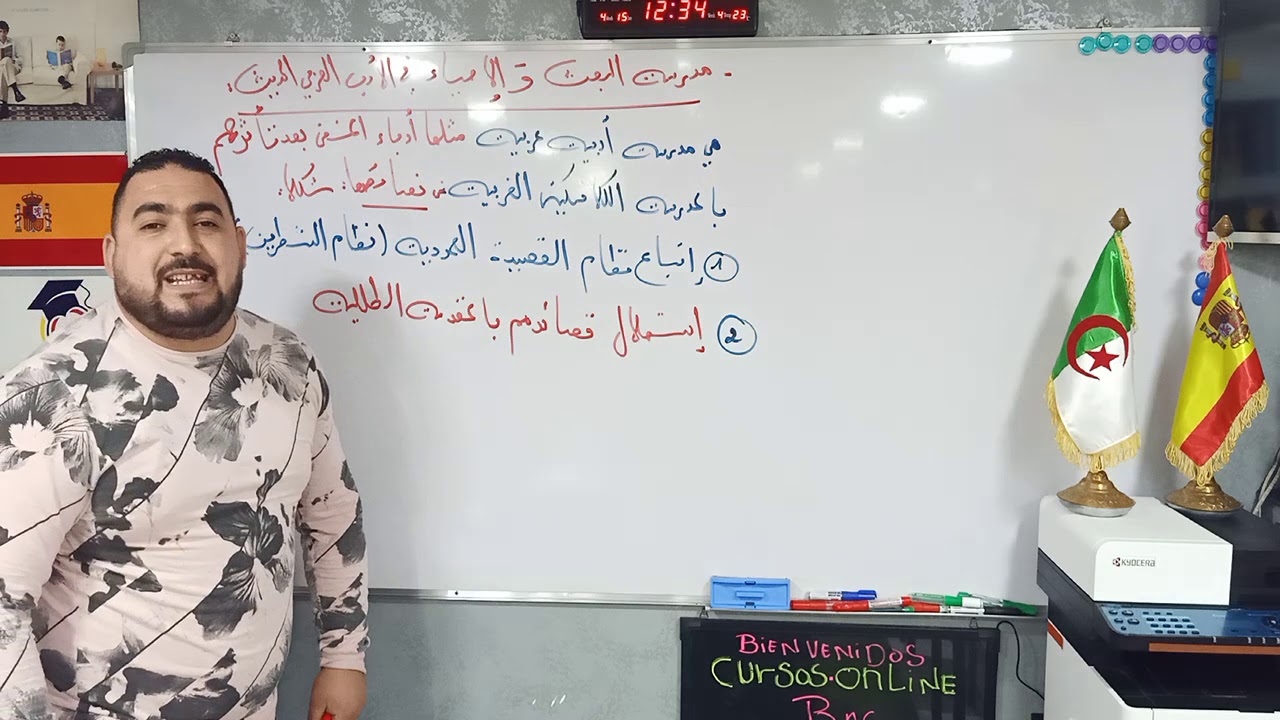 12:34
4 15 4 23℃
- مدرسة البعث و الإحياء في الأدب العربي الحديث:
هي مدرسة أدبية عربية مثلها أدباء المشرق بعد تأثرهم
بالمدرسة الكلاسيكية الغربية من خصائصها: شكلا:
① إتباع نظام القصيدة العمودية (نظام الشطرين
② إستهلال قصائدهم بالمقدمة الطللية
KYOCERA
BIENVENIDOS
CURSOS.ONLINE
Bac